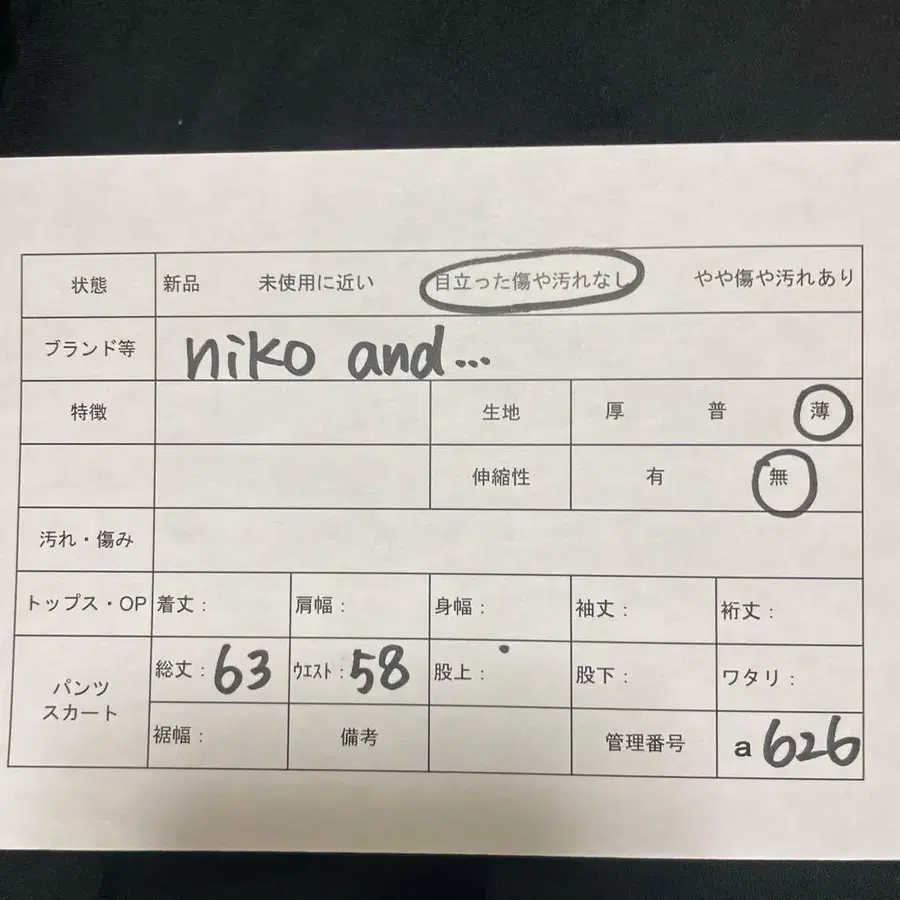 状態 新品 未使用に近い 目立った傷や汚れなし やや傷や汚れあり
ブランド等 niko and...
特徴 生地 厚 普 薄
伸縮性 有 無
汚れ・傷み
トップス・OP 着丈： 肩幅： 身幅： 袖丈： 裄丈：
パンツ スカート 総丈：63 ウエスト：58 股上： 股下： ワタリ：
裾幅： 備考 管理番号 a 626